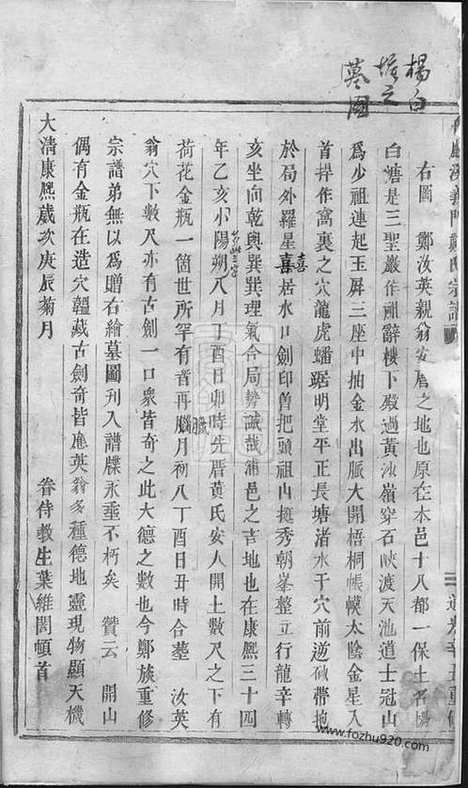 楊白
塘之
墓圖
浦陽漢義門鄭氏宗譜
道光辛丑重修
右圖 鄭汝英親翁安厝之地也原在本邑十八都一保土名楊
白塘是三聖巖作祖辭樓下殿過黃沙嶺穿石峽渡天池道士冠山
爲少祖連起玉屏三座中抽金水出脈大開梧桐帳幙太陰金星入
首拌作窩裏之穴龍虎蟠踞明堂平正長塘渚水于穴前逆砂帶抱
於局外羅星喜居水口劍印曽把頭祖山挺秀朝峯整立行龍辛轉
喜
亥坐向乾與巽理氣合局勢誠哉浦邑之吉地也在康熙三十四
年乙亥小陽朔八月丁酉日卯時先厝黄氏安人開土數尺之下有
荷花金瓶一箇世所罕有者再臘月初八丁酉日丑時合塟 汝英
臘
翁穴下數尺亦有古劍一口衆皆奇之此大德之數也今鄭族重修
宗譜弟無以爲贈右繪墓圖刊入譜牒永垂不朽矣 贊云 開山
偶有金瓶在造穴韞藏古劍奇皆應英翁多種德地靈現物顯天機
大清康熙歲次庚辰菊月 眷侍敎生葉維閣頓首
www.fozhu920.com